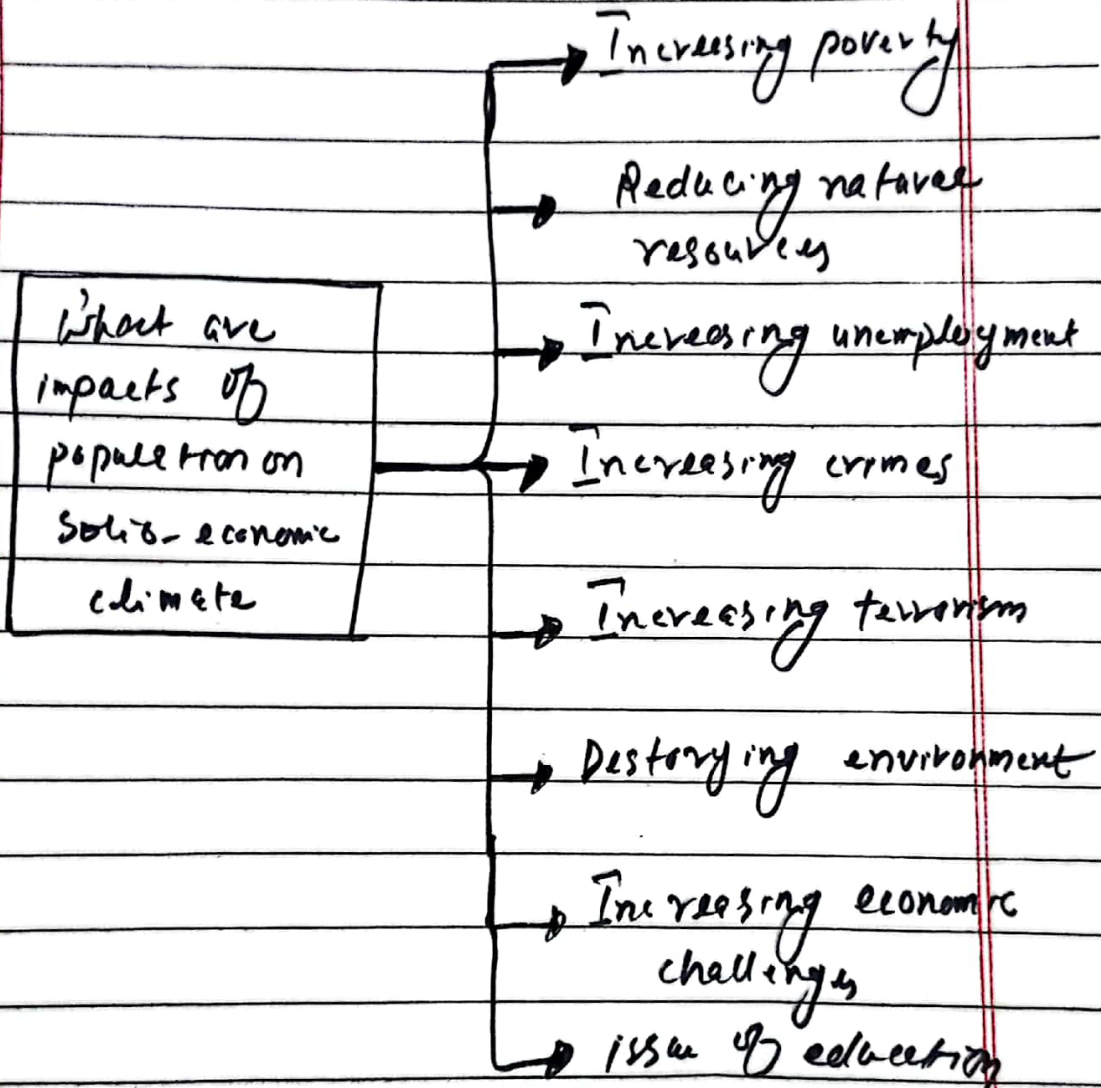 What are
impacts of
population on
Solio-economic
climate
Increasing poverty
Reducing natural
resources
Increasing unemployment
Increasing crimes
Increasing terrorism
Destorying environment
Increasing economic
challenges
issue of education